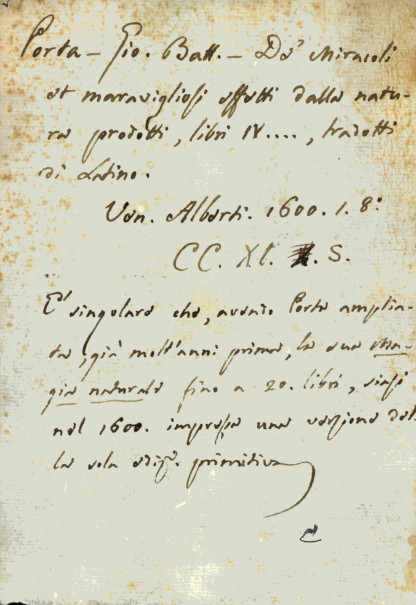 Porta – Gio. Batt. – De' Miracoli
et maravigliosi effetti dalla natu-
ra prodotti, libri IV...., tradotti
di Latino.
Ven. Alberti. 1600. 1. 8:
CC. XL. S.
E' singolare che, avendo Porta amplia-
ta, già molt'anni prima, la sua Ma-
gia naturale fino a 20. libri, siasi
nel 1600. impressa una versione del
la sola ediz. primitiva